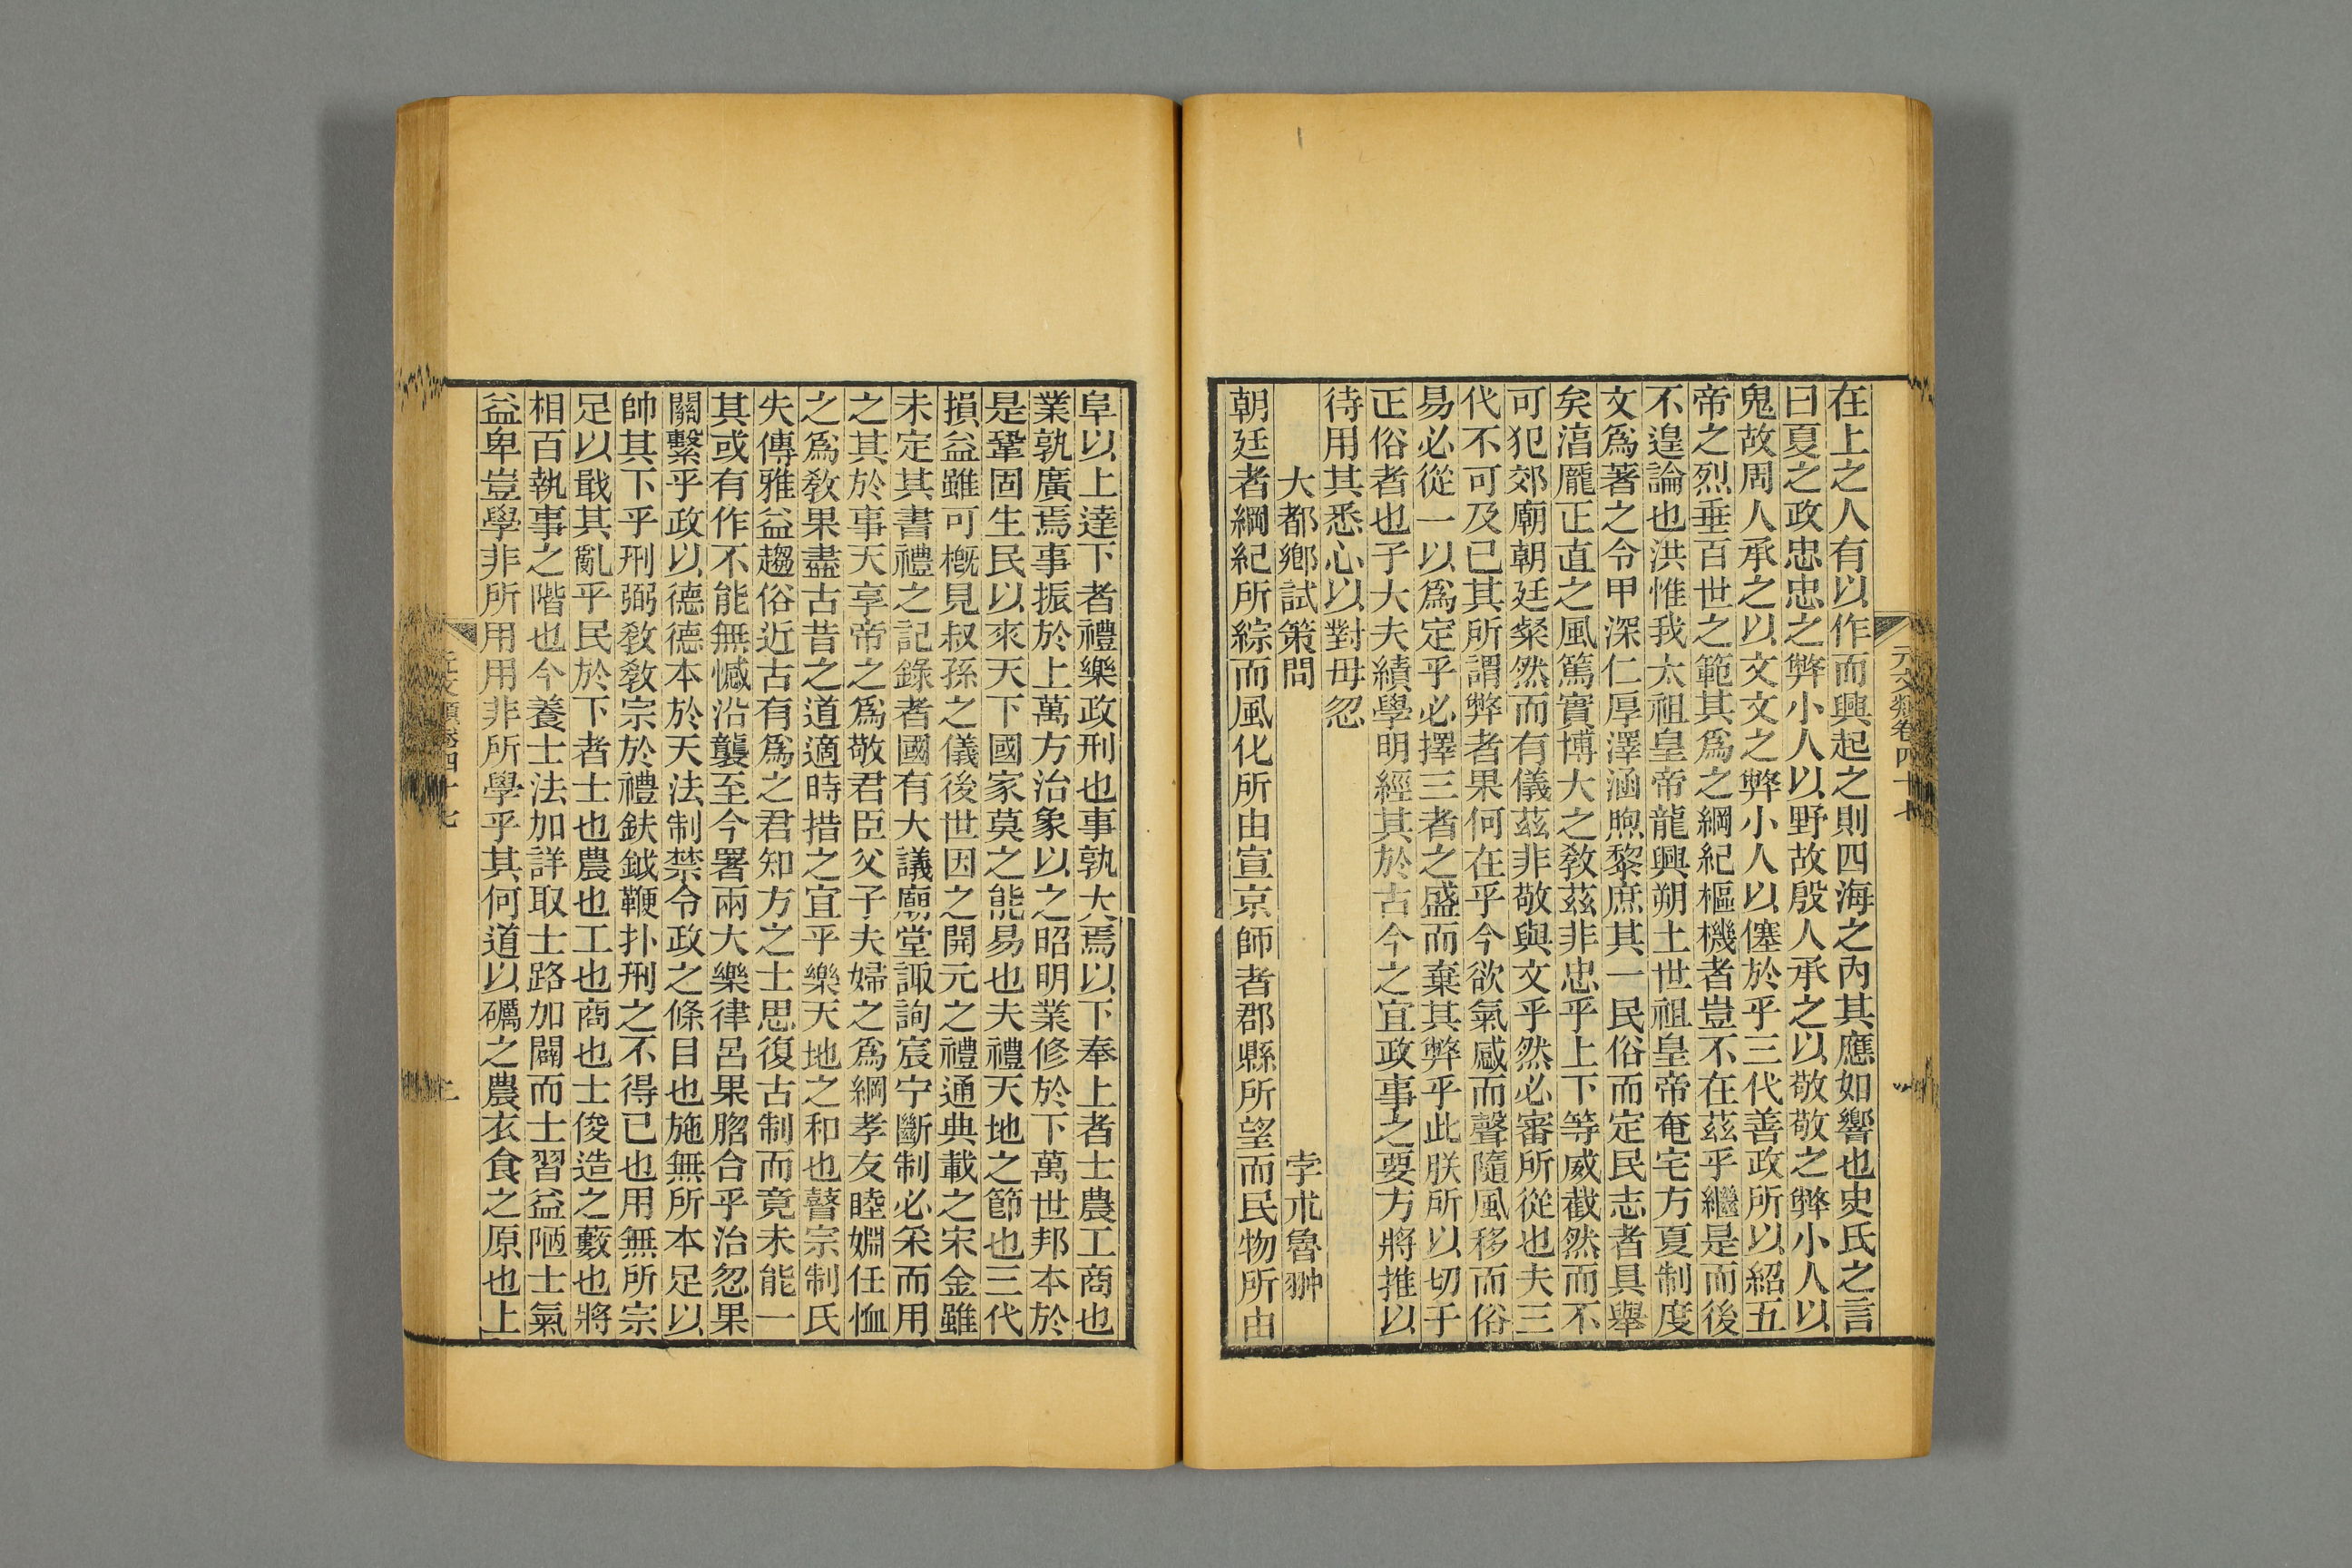 元文類卷四十七
在上之人有以作而興起之則四海之內其應如響也史氏之言
曰夏之政忠忠之弊小人以野故殷人承之以敬敬之弊小人以
鬼故周人承之以文文之弊小人以僿於乎三代善政所以紹五
帝之烈垂百世之範其爲之綱紀樞機者豈不在茲乎繼是而後
不遑論也洪惟我太祖皇帝龍興朔土世祖皇帝奄宅方夏制度
文爲著之令甲深仁厚澤涵煦黎庶其一民俗而定民志者具舉
矣湻龎正直之風篤實博大之敎茲非忠乎上下等威截然而不
可犯郊廟朝廷粲然而有儀茲非敬與文乎然必審所從也夫三
代不可及已其所謂弊者果何在乎今欲氣感而聲隨風移而俗
易必從一以爲定乎必擇三者之盛而棄其弊乎此朕所以切于
正俗者也子大夫績學明經其於古今之宜政事之要方將推以
待用其悉心以對毋忽
大都鄉試策問
孛朮魯翀
朝廷者綱紀所綜而風化所由宣京師者郡縣所望而民物所由
阜以上達下者禮樂政刑也事孰大焉以下奉上者士農工商也
業孰廣焉事振於上萬方治象以之昭明業修於下萬世邦本於
是鞏固生民以來天下國家莫之能易也夫禮天地之節也三代
損益雖可槪見叔孫之儀後世因之開元之禮通典載之宋金雖
未定其書禮之記錄者國有大議廟堂諏詢宸宁斷制必采而用
之其於事天享帝之爲敬君臣父子夫婦之爲綱孝友睦婣任恤
之爲敎果盡古昔之道適時措之宜乎樂天地之和也瞽宗制氏
失傳雅益趨俗近古有爲之君知方之士思復古制而竟未能一
其或有作不能無憾沿襲至今署兩大樂律呂果脗合乎治忽果
關繫乎政以德德本於天法制禁令政之條目也施無所本足以
帥其下乎刑弼敎敎宗於禮鈇鉞鞭扑刑之不得已也用無所宗
足以戢其亂乎民於下者士也農也工也商也士俊造之藪也將
相百執事之階也今養士法加詳取士路加闢而士習益陋士氣
益卑豈學非所用用非所學乎其何道以礪之農衣食之原也上
元文類卷四十七
二